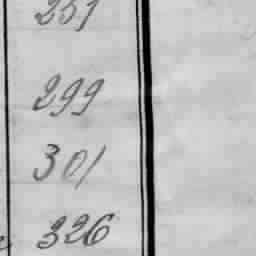 299
301
326